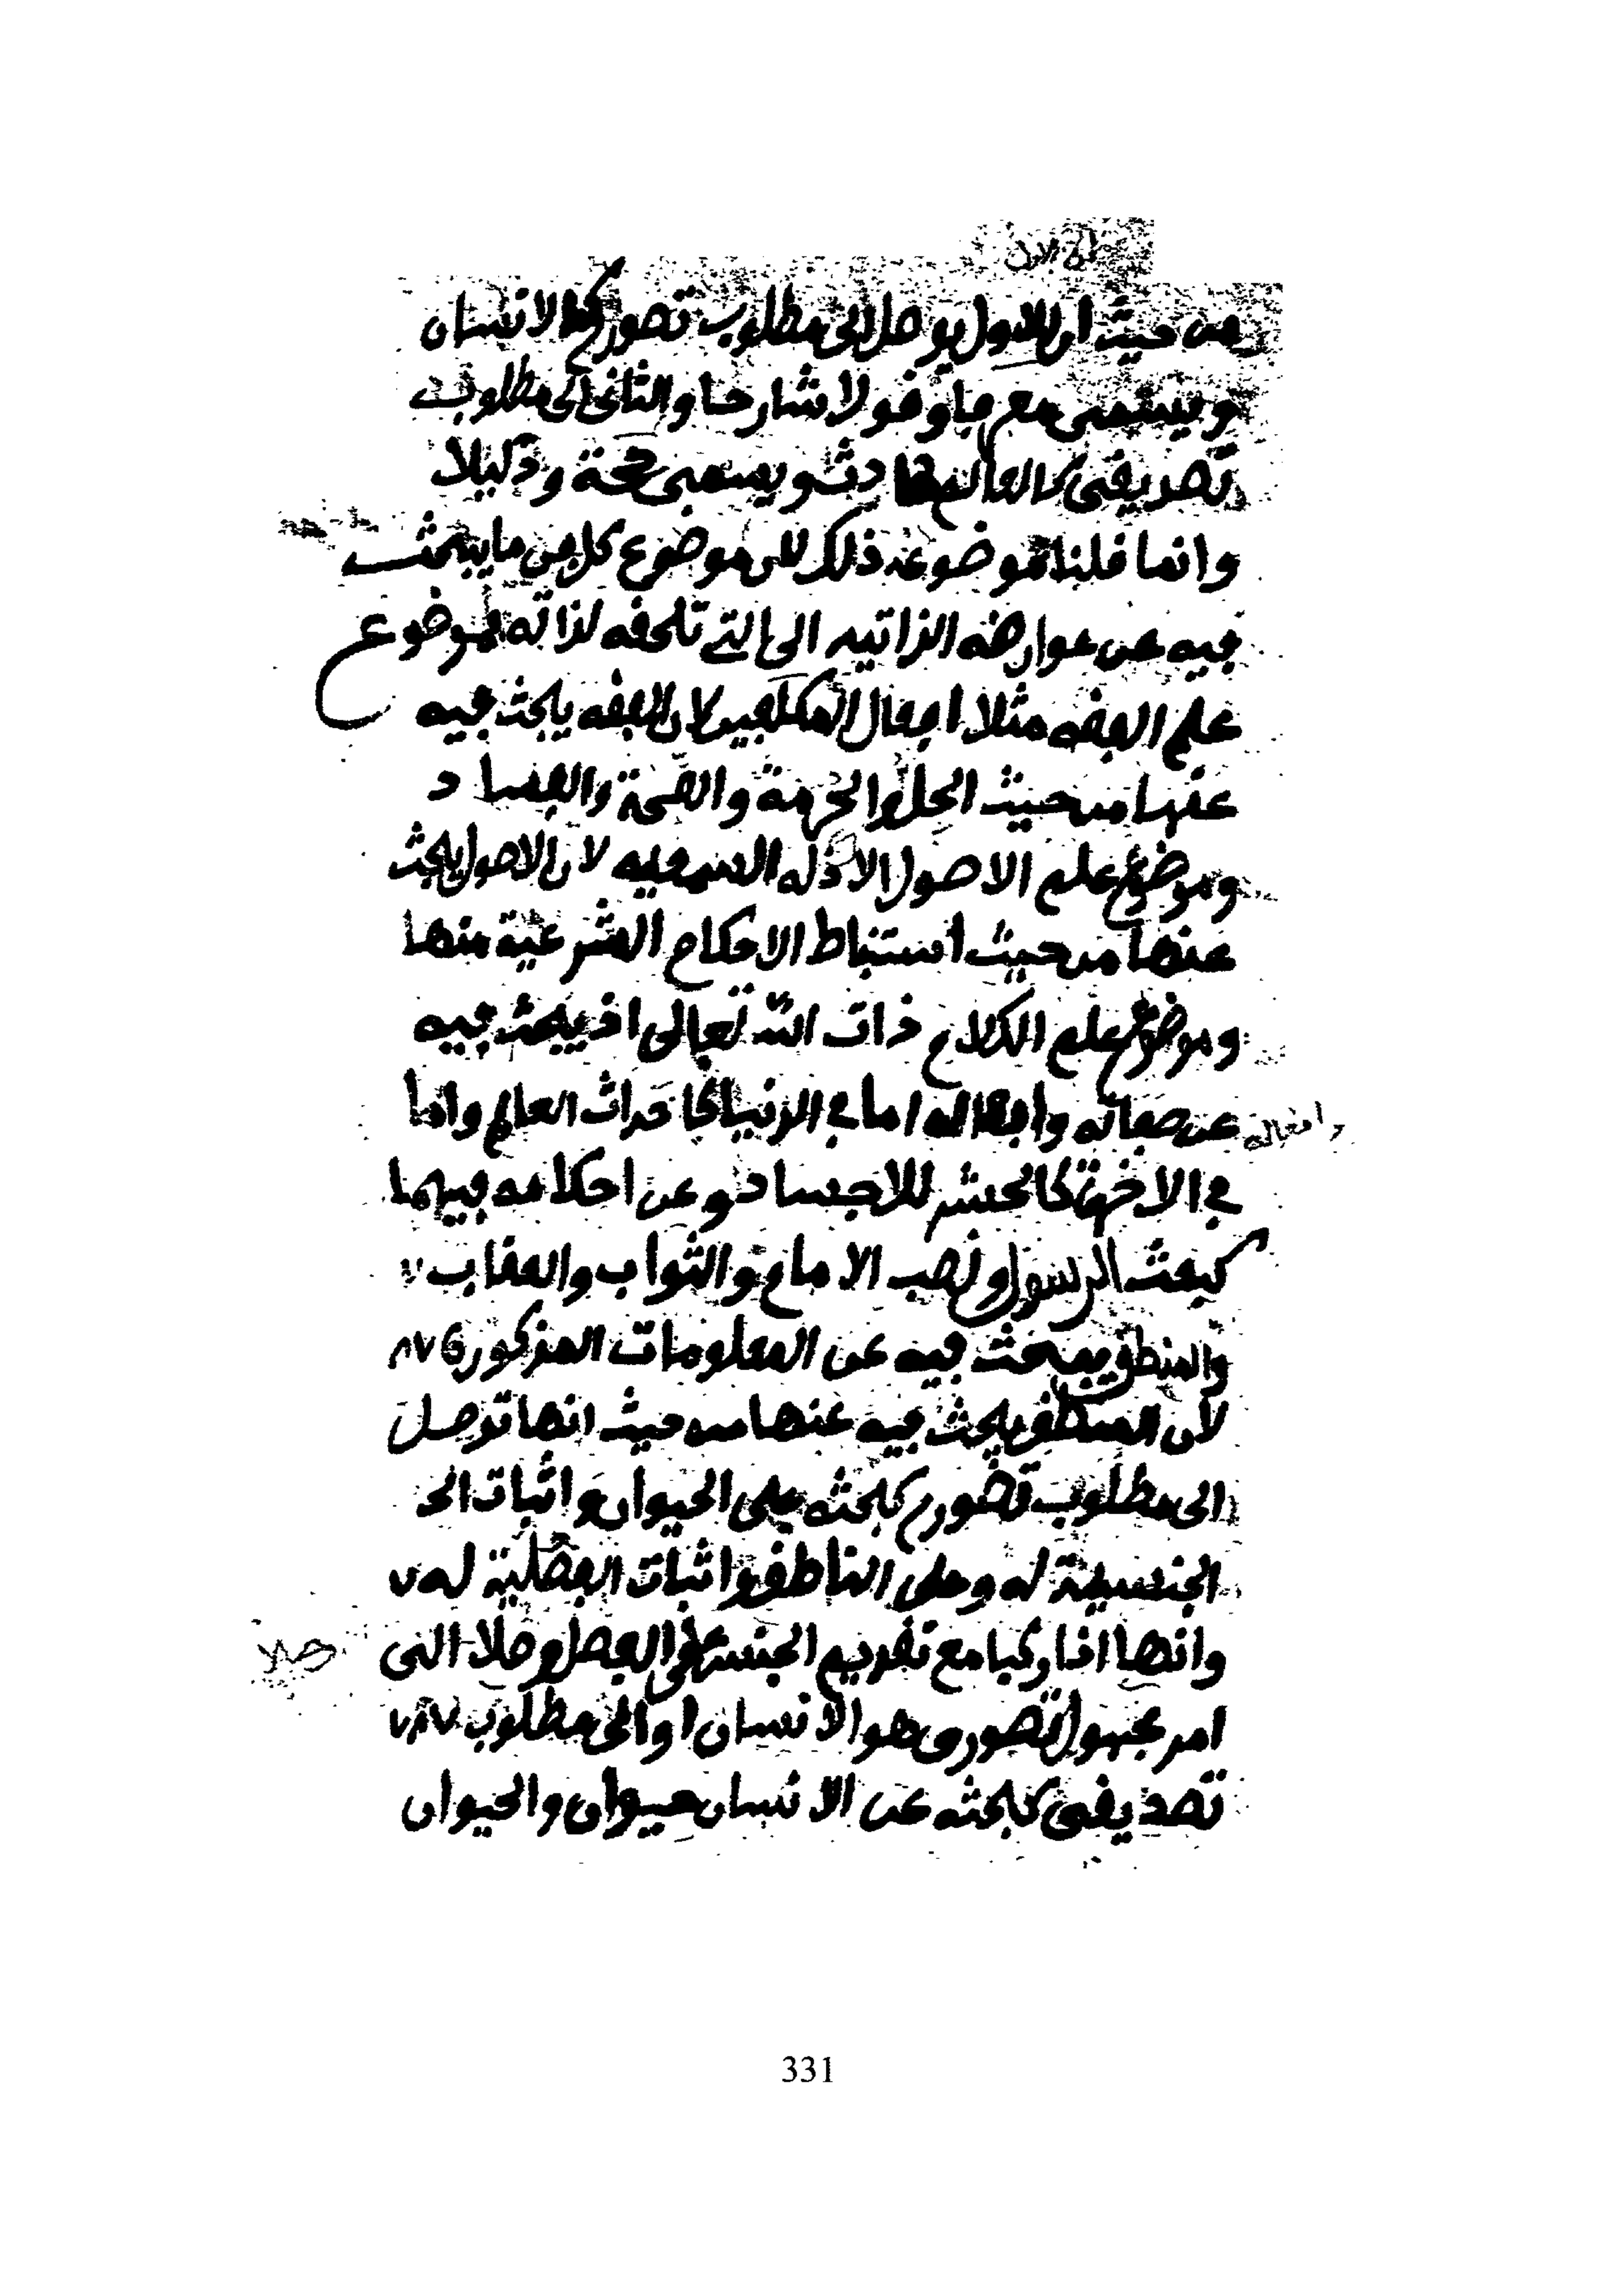 من حيث ان الاول يوصل الى مطلوب تصوري كالانسان
ويسمى معرفا وقولا شارحا والثاني الى مطلوب
تصديقي كالعالم حادث ويسمى حجة ودليلا
وانما قلنا موضوعه ذلك لان موضوع كل فن ما يبحث
فيه عن عوارضه الذاتيه اي التي تلحقه لذاته فموضوع
علم الفقه مثلا افعال المكلفين لان الفقه يبحث فيه
عنها من حيث الحل والحرمة والصحة والفساد
وموضوع علم الاصول الادله السمعيه لان الاصول يبحث
عنها من حيث استنباط الاحكام الشرعية منها
وموضوع علم الكلام ذات الله تعالى اذ يبحث فيه
عن صفاته وافعاله اما في الدنيا كاحداث العالم واما
وافعاله
في الاخرة كالحشر للاجساد وعن احكامه فيهما
كبعث الرسول ونصب الامام والثواب والعقاب
والمنطق يبحث فيه عن المعلومات المذكورة
لان المنطق يبحث فيه عنها من حيث انها توصل
الى مطلوب تصوري كبحثه على الحيوان واثبات الحد
الجنسية له وعلى الناطق واثبات الفصلية له
وانها اذا ركبا مع تقديم الجنس على الفصل وصلا الى
امر مجهول تصوري هو الانسان او الى مطلوب
تصديقي كبحثه عن الانسان حيوان والحيوان
331